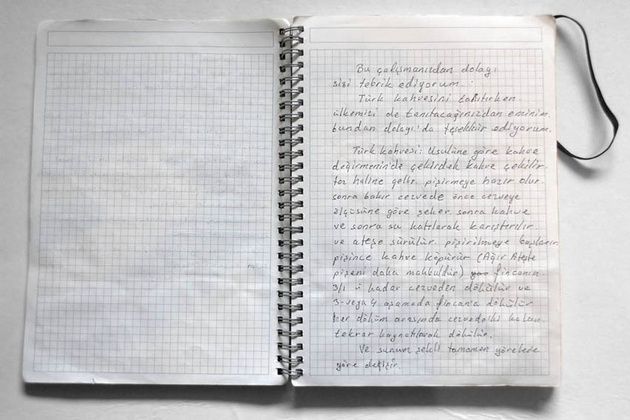 Bu çalışmanızdan dolayı
sizi tebrik ediyorum.
Türk kahvesini tanıtırken
ülkemizi de tanıtacağınızdan eminim
bundan dolayı'da teşekkür ediyorum.
Türk kahvesi: Usulüne göre kahve
değirmenin'de çekirdek kahve çekilir
toz haline gelir. pişirmeye hazır olur
sonra bakır cezvede önce cezveye
ölçüsüne göre şeker sonra kahve
ve sonra su katılarak karıştırılır
ve ateşe sürülür. pişirilmeye başlanır
pişince kahve köpürür (Ağır Ateşte
pişeni daha makbuldür) fincanın
3/1 ü kadar cezveden dökülür ve
3-veya 4 aşamada fincana dökülür
her döküm arasında cezvedeki kalan
tekrar kaynatılarak dökülür.
Ve sunum şekli tamamen yörelere
göre değişir.